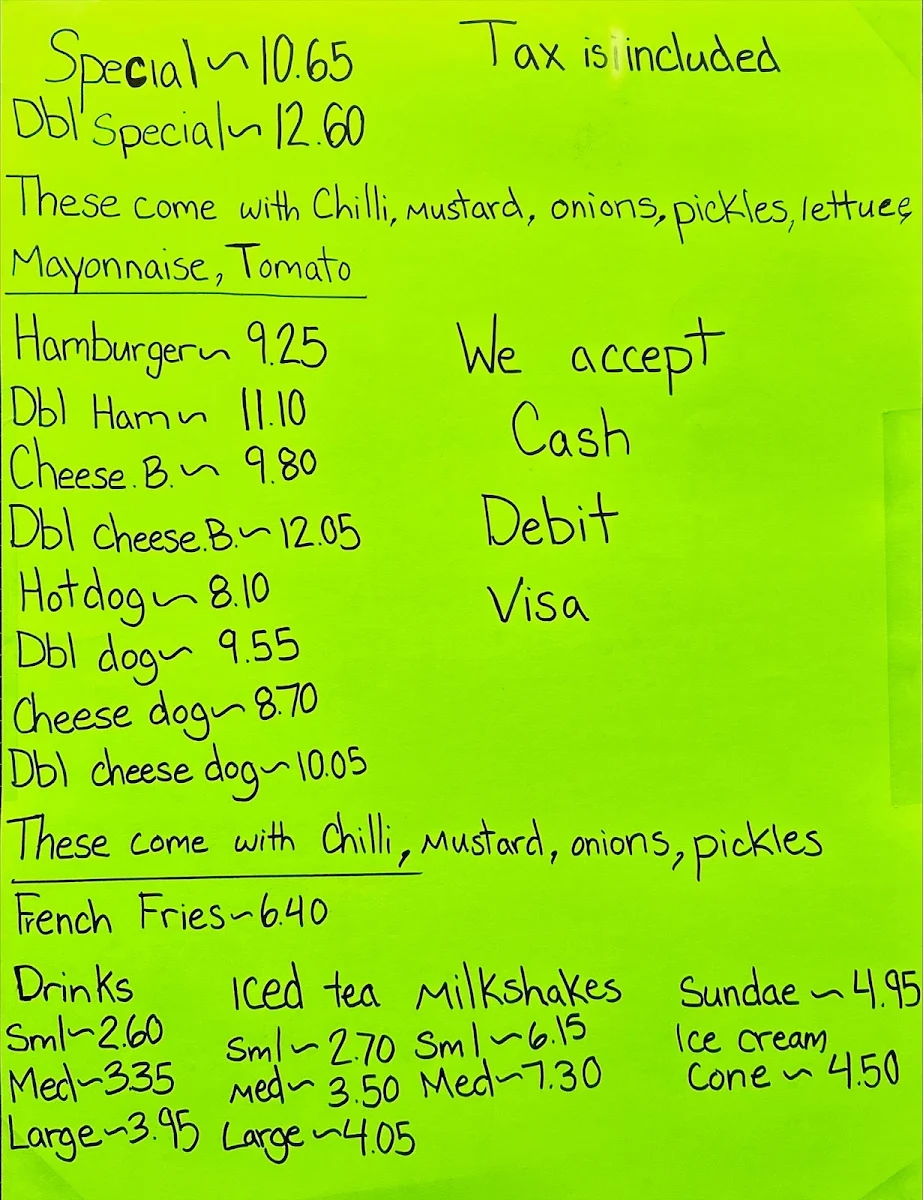 Special ~ 10.65
Tax is included
Dbl Special ~ 12.60
These come with Chilli, Mustard, onions, pickles, lettuce,
Mayonnaise, Tomato
Hamburger ~ 9.25
Dbl Ham ~ 11.10
Cheese.B. ~ 9.80
Dbl cheese.B. ~ 12.05
Hotdog ~ 8.10
Dbl dog ~ 9.55
Cheese dog ~ 8.70
Dbl cheese dog ~ 10.05
We accept
Cash
Debit
Visa
These come with Chilli, Mustard, onions, pickles
French Fries ~ 6.40
Drinks
Sml ~ 2.60
Med ~ 3.35
Large ~ 3.95
Iced tea
Sml ~ 2.70
Med ~ 3.50
Large ~ 4.05
Milkshakes
Sml ~ 6.15
Med ~ 7.30
Sundae ~ 4.95
Ice cream
Cone ~ 4.50